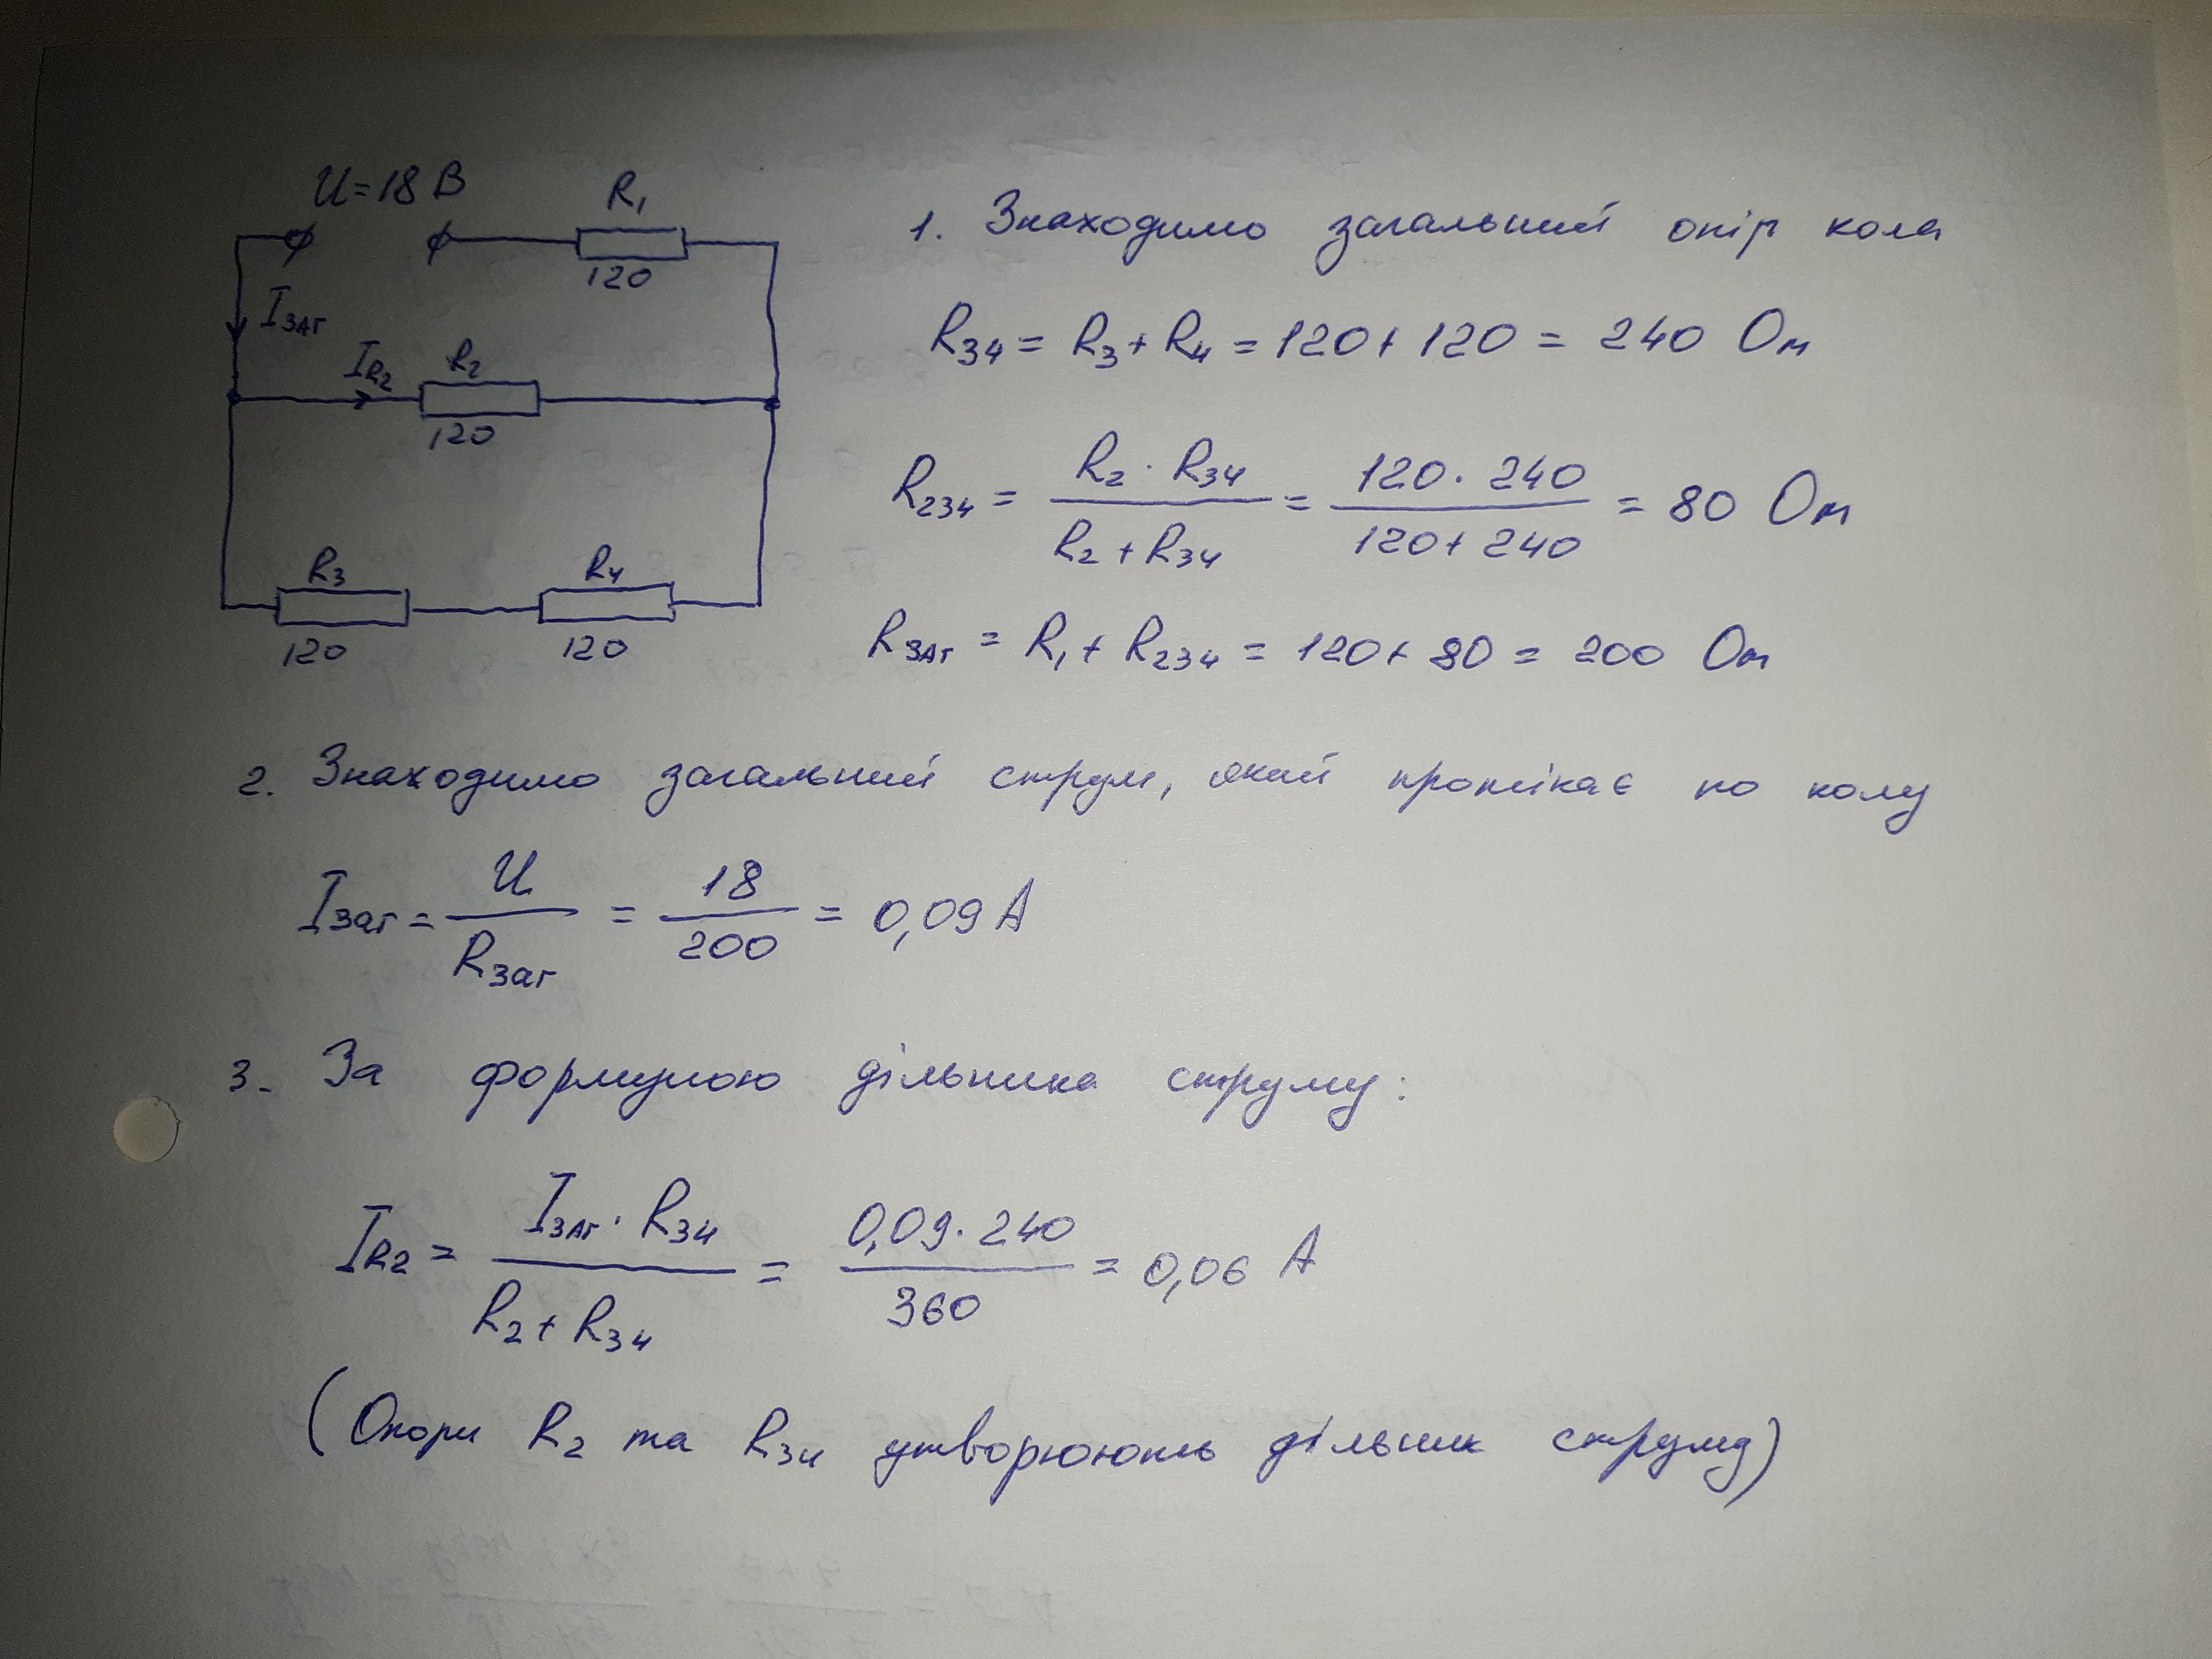 U=18 В
R₁
120
Iзаг
IR₂
R₂
120
R₃
120
R₄
120
1. Знаходимо загальний опір кола
R₃₄ = R₃ + R₄ = 120 + 120 = 240 Ом
R₂₃₄ = (R₂ · R₃₄) / (R₂ + R₃₄) = (120 · 240) / (120 + 240) = 80 Ом
Rзаг = R₁ + R₂₃₄ = 120 + 80 = 200 Ом
2. Знаходимо загальний струм, який протікає по колу
Iзаг = U / Rзаг = 18 / 200 = 0,09 А
3. За формулою дільника струму:
IR₂ = (Iзаг · R₃₄) / (R₂ + R₃₄) = (0,09 · 240) / 360 = 0,06 А
(Опори R₂ та R₃₄ утворюють дільник струму)